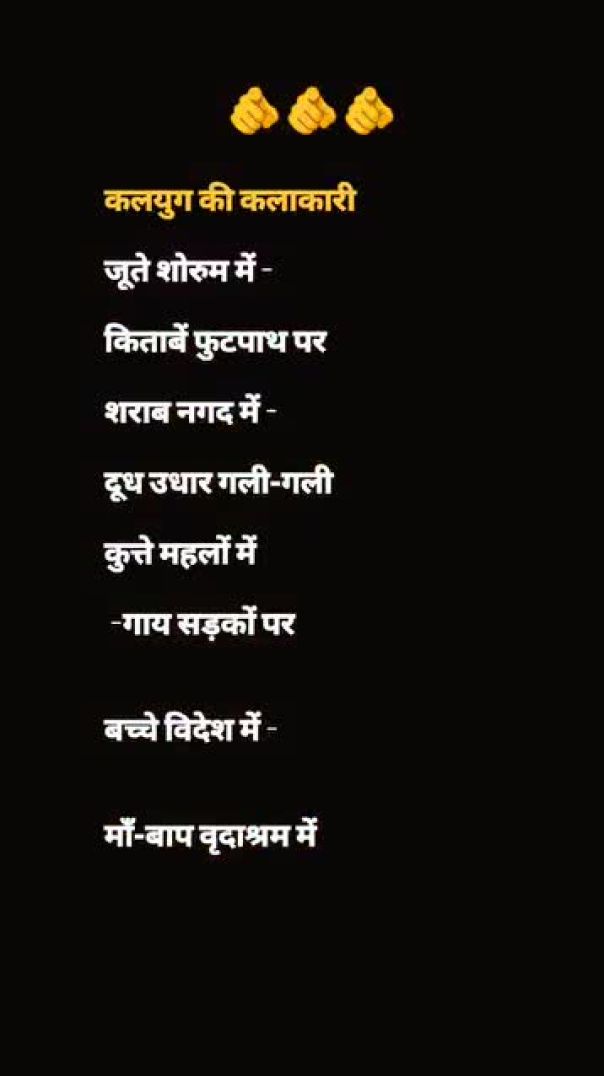 कलयुग की कलाकारी
जूते शोरुम में -
किताबें फुटपाथ पर
शराब नगद में -
दूध उधार गली-गली
कुत्ते महलों में
-गाय सड़कों पर
बच्चे विदेश में -
माँ-बाप वृदाश्रम में